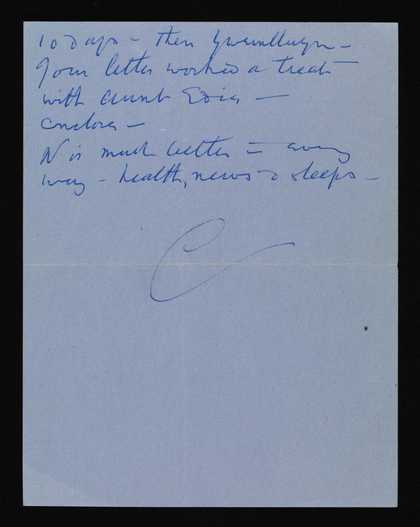 10 days – then Gwenllwyn –
Your letter worked a treat
with Aunt Edie –
enclose –
N is much better – every
way – health, news & sleeps –
C